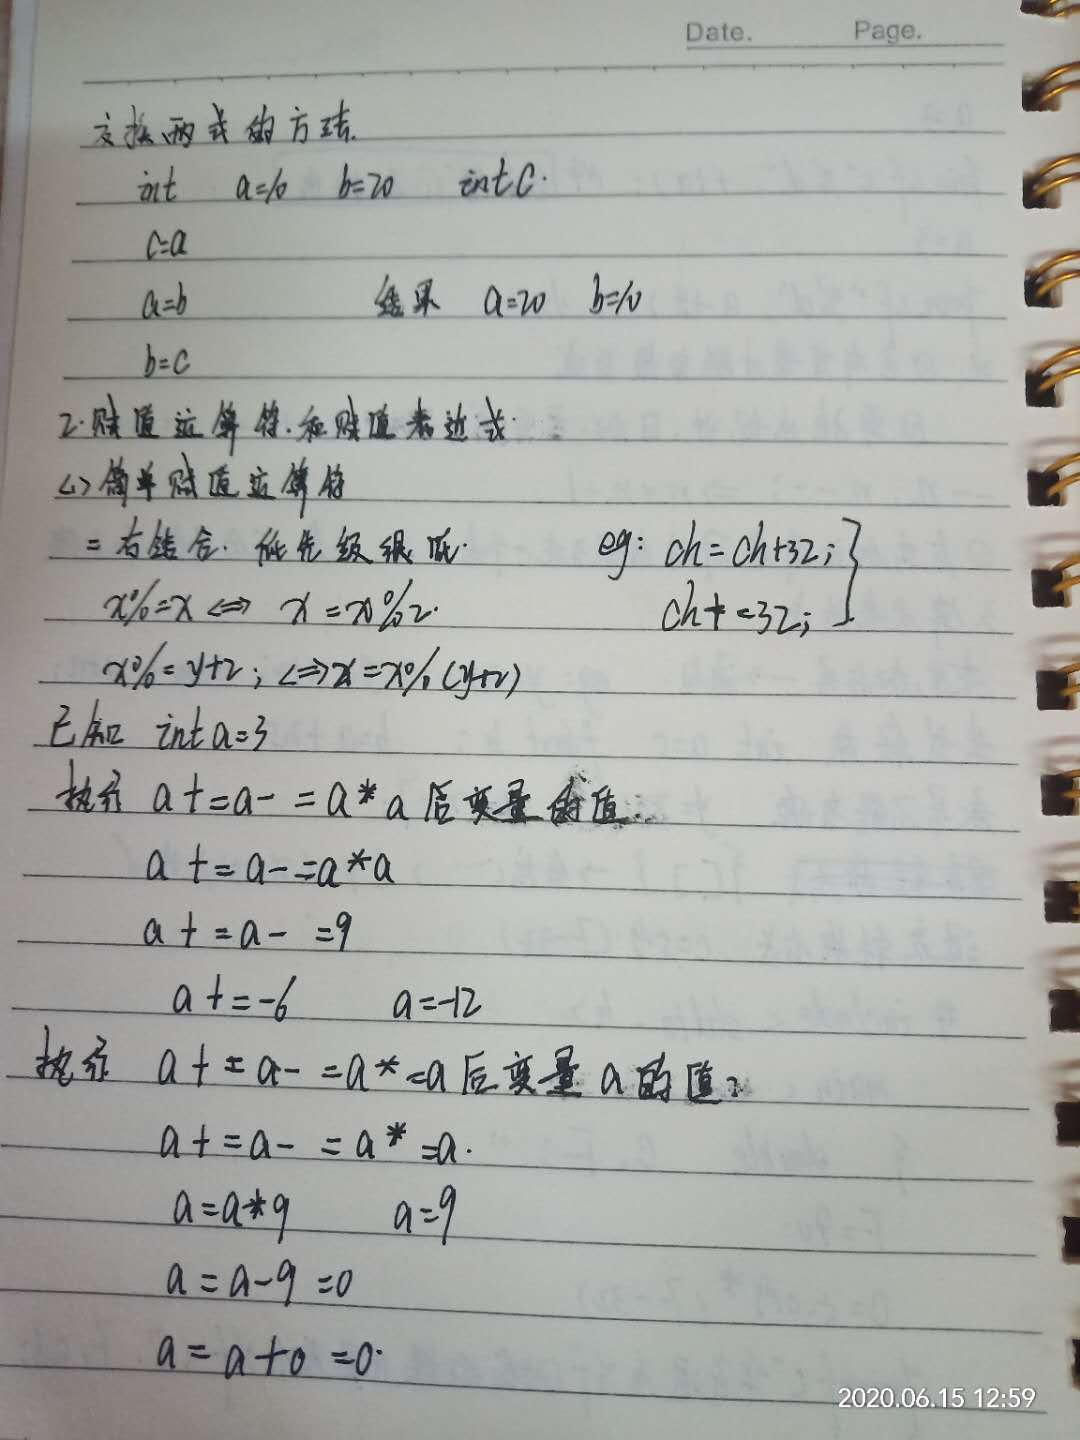 Date. Page.
交换两式的方法.
int a=10 b=20 int c.
c=a
a=b 结果 a=20 b=10
b=c
2.赋值运算符.和赋值表达式.
<1>简单赋值运算符
=右结合.优先级很低. eg: ch=ch+32;
x%=x <=> x=x%2. ch+=32;
x%=y+2; <=>x=x%(y+2)
已知 int a=3
执行 a+=a-=a*a后变量的值:
a+=a-=a*a
a+=a-=9
a+=-6 a=-12
执行 a+=a-=a*=a后变量a的值:
a+=a-=a*=a.
a=a*9 a=9
a=a-9=0
a=a+0=0.
2020.06.15 12:59